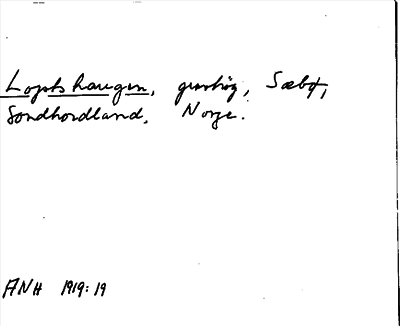 Loptshaugen, gravhög, Sæbø,
Söndhordland, Norge.
ANH 1919:19